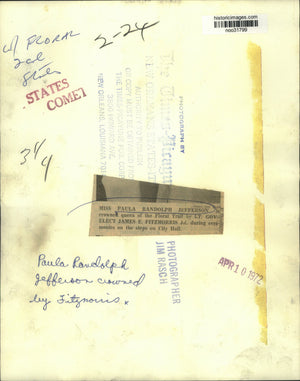 historicimages.com
noo31799
w/ FLORAL
2d
States
2-24
STATES
COMET
3/4
PHOTOGRAPH BY
The Times-Picayune
NEW ORLEANS STATES-ITEM
NEW ORLEANS, LOUISIANA
MISS PAULA RANDOLPH JEFFERSON
crowned queen of the Floral Trail by LT. GOV.-
ELECT JAMES E. FITZMORRIS Jr. during cere-
monies on the steps on City Hall.
PHOTOGRAPHER
JIM RASCH
APR 10 1972
Paula Randolph
Jefferson crowned
by Fitzmorris